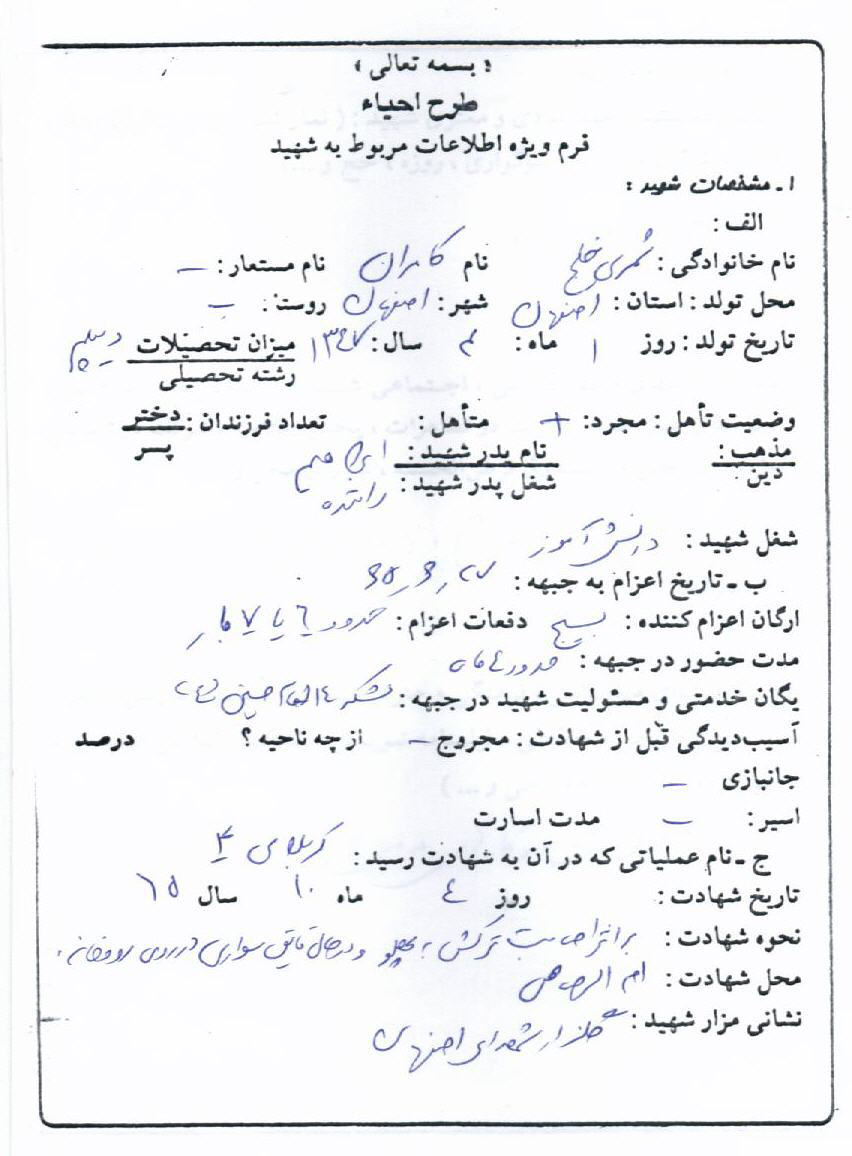 « بسمه تعالی »
طرح احیاء
فرم ویژه اطلاعات مربوط به شهید
۱ـ مشخصات شهید :
الف :
نام خانوادگی : ثمری خلج نام کامران نام مستعار : —
محل تولد : استان : اصفهان شهر : اصفهان روستا : —
تاریخ تولد : روز ۱ ماه : ۳ سال : ۱۳۴۷ میزان تحصیلات دیپلم
رشته تحصیلی
وضعیت تأهل : مجرد : + متأهل : تعداد فرزندان : دختر
پسر
مذهب : نام پدر شهید : ابراهیم
دین : شغل پدر شهید : راننده
شغل شهید : دانش آموز
ب ـ تاریخ اعزام به جبهه :
ارگان اعزام کننده : بسیج دفعات اعزام : حدود ۶ یا ۷ بار
مدت حضور در جبهه : حدود
یگان خدمتی و مسئولیت شهید در جبهه : لشکر ۱۴ امام حسین
آسیب‌دیدگی قبل از شهادت : مجروح — از چه ناحیه ؟ درصد
جانبازی —
اسیر : — مدت اسارت
ج ـ نام عملیاتی که در آن به شهادت رسید : کربلای ۴
تاریخ شهادت : روز ٤ ماه ۱۰ سال ٦٥
نحوه شهادت : بر اثر اصابت ترکش به پهلو و در حال قایق سواری در روی رودخانه .
محل شهادت : ام الرصاص
نشانی مزار شهید : گلزار شهدای اصفهان